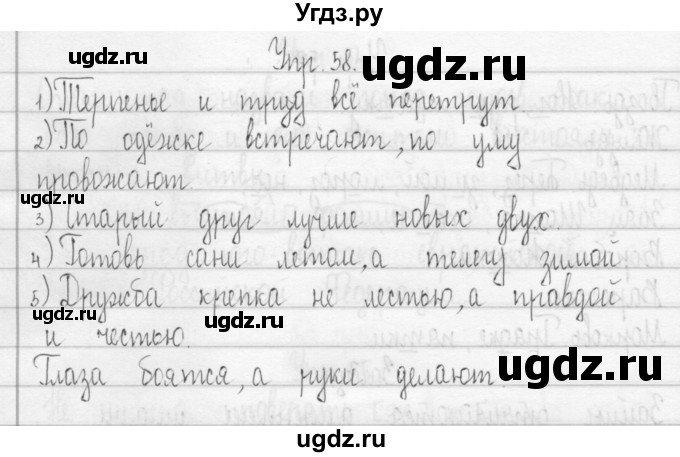 Угдз.ру
Упр. 58.
ugdz.ru
ugdz.ru
1) Терпенье и труд всё перетрут
ugdz.ru
2) По одёжке встречают, по уму
провожают.
ugdz.ru
3) Старый друг лучше новых двух.
4) Готовь сани летом, а телегу зимой
ugdz.ru
5) Дружба крепка не лестью, а правдой
ugdz.ru
и честью.
Глаза боятся, а руки делают.
ugdz.ru
ugdz.ru